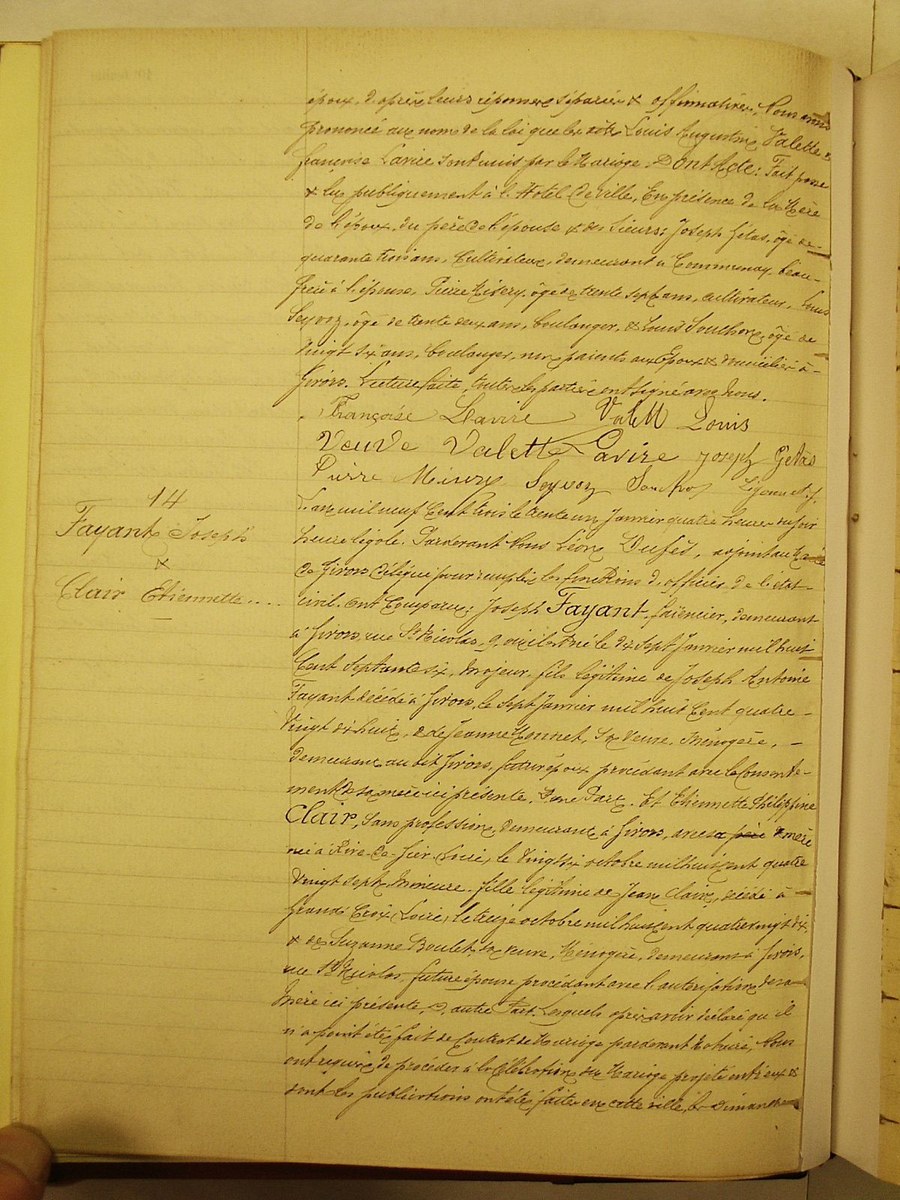 époux, d'après leurs réponses séparées & affirmatives, nous avons
prononcé au nom de la loi que les dits Louis Augustin Valette &
françoise Lavire sont unis par le Mariage. Dont Acte: Fait passé
& lu publiquement à l'Hotel de Ville, En présence de la Mère
de l'époux, du père de l'épouse & des sieurs: Joseph Gelas, âgé de
quarante trois ans, Cultivateur, demeurant à Communay, beau-
frère à l'épouse, Pierre âgé de trente sept ans, cultivateur, Louis
Seyvoz, âgé de trente deux ans, boulanger, & Louis âgé de
vingt six ans, boulanger, non parents aux Epoux & domiciliés à
Givors. Lecture faite, toutes les parties ont signé avec Nous.
Françoise Lavire Louis
Veuve Valette Lavire joseph Gelas
Pierre Seyvoz
14
Fayant Joseph
&
Clair Etiennette....
L'an mil neuf Cent trois le trente un Janvier quatre heures du soir
heure légale. Pardevant Nous Léon Dufès, adjoint au Maire
de Givors délégué pour remplir les fonctions d'officier de l'état-
civil, ont Comparu: Joseph Fayant, faïencier, demeurant
à Givors, rue St Nicolas, 9, où il est né le dix sept Janvier mil huit
Cent septante six, Majeur, fils légitime de Joseph Antoine
Fayant décédé à Givors, le sept Janvier mil huit Cent quatre-
Vingt dix huit, & de Jeanne Monnet, sa Veuve, Ménagère, -
demeurant au dit Givors, futur époux procédant avec le Consente-
ment de sa mère ici présente, D'une Part. Et Etiennette Philippine
Clair, sans profession, demeurant à Givors, avec sa père & mère
née à Rive-de-Gier, Loire, le Vingt six octobre mil huit cent quatre
Vingt sept, Mineure, fille légitime de Jean Clair, décédé à -
Grand-Croix, Loire, le treize octobre mil huit cent quatre vingt dix,
& de Suzanne Boulet, sa veuve, Ménagère, demeurant à Givors,
rue St Nicolas, future épouse procédant avec l'autorisation de sa
Mère ici présente, D'autre Part. Lesquels après avoir déclaré qu'il
n'a point été fait de Contrat de Mariage pardevant Notaire, Nous
ont requis de procéder à la Célébration du Mariage projeté entre eux &
dont les publications ont été faites en cette ville, les dimanches